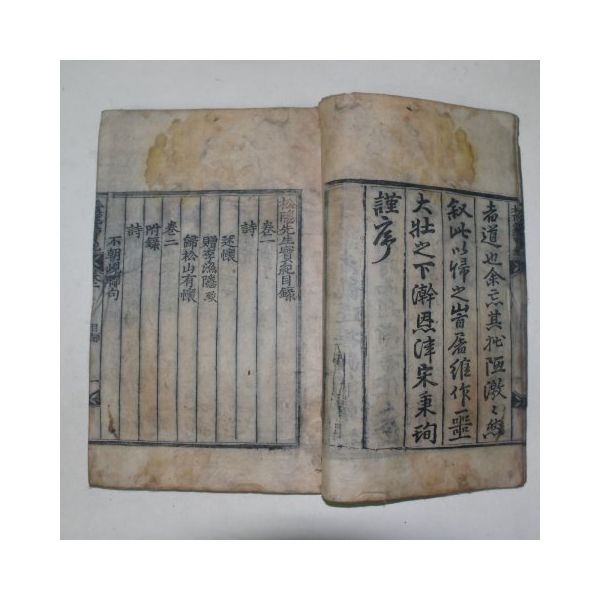 者道也余忘其拙陋潑〻然
叙此以歸之旹屠維作噩
大壯之下澣恩津宋秉珣
謹序
松隱先生實紀目錄
卷一
詩
述懷
贈李漁隱致
歸松山有懷
卷二
附錄
詩
不朝峴聯句
目錄
一